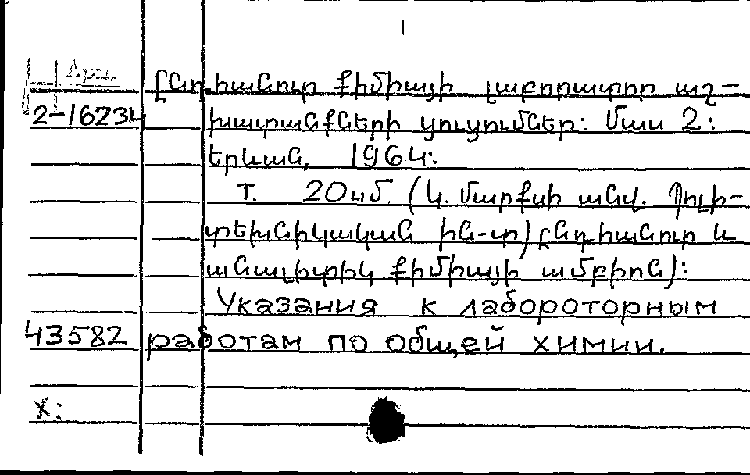 Ընդհանուր քիմիայի լաբորատոր աշ-
2-16234 խատանքների ցուցումներ: Մաս 2:
Երևան, 1964:
Т. 20սմ. (Կ. Մարքսի անվ. Պոլի-
տեխնիկական ին-տ) ընդհանուր և
անալիտիկ քիմիայի ամբիոն):
Указания к лабороторным
43582 работам по общей химии.
х: